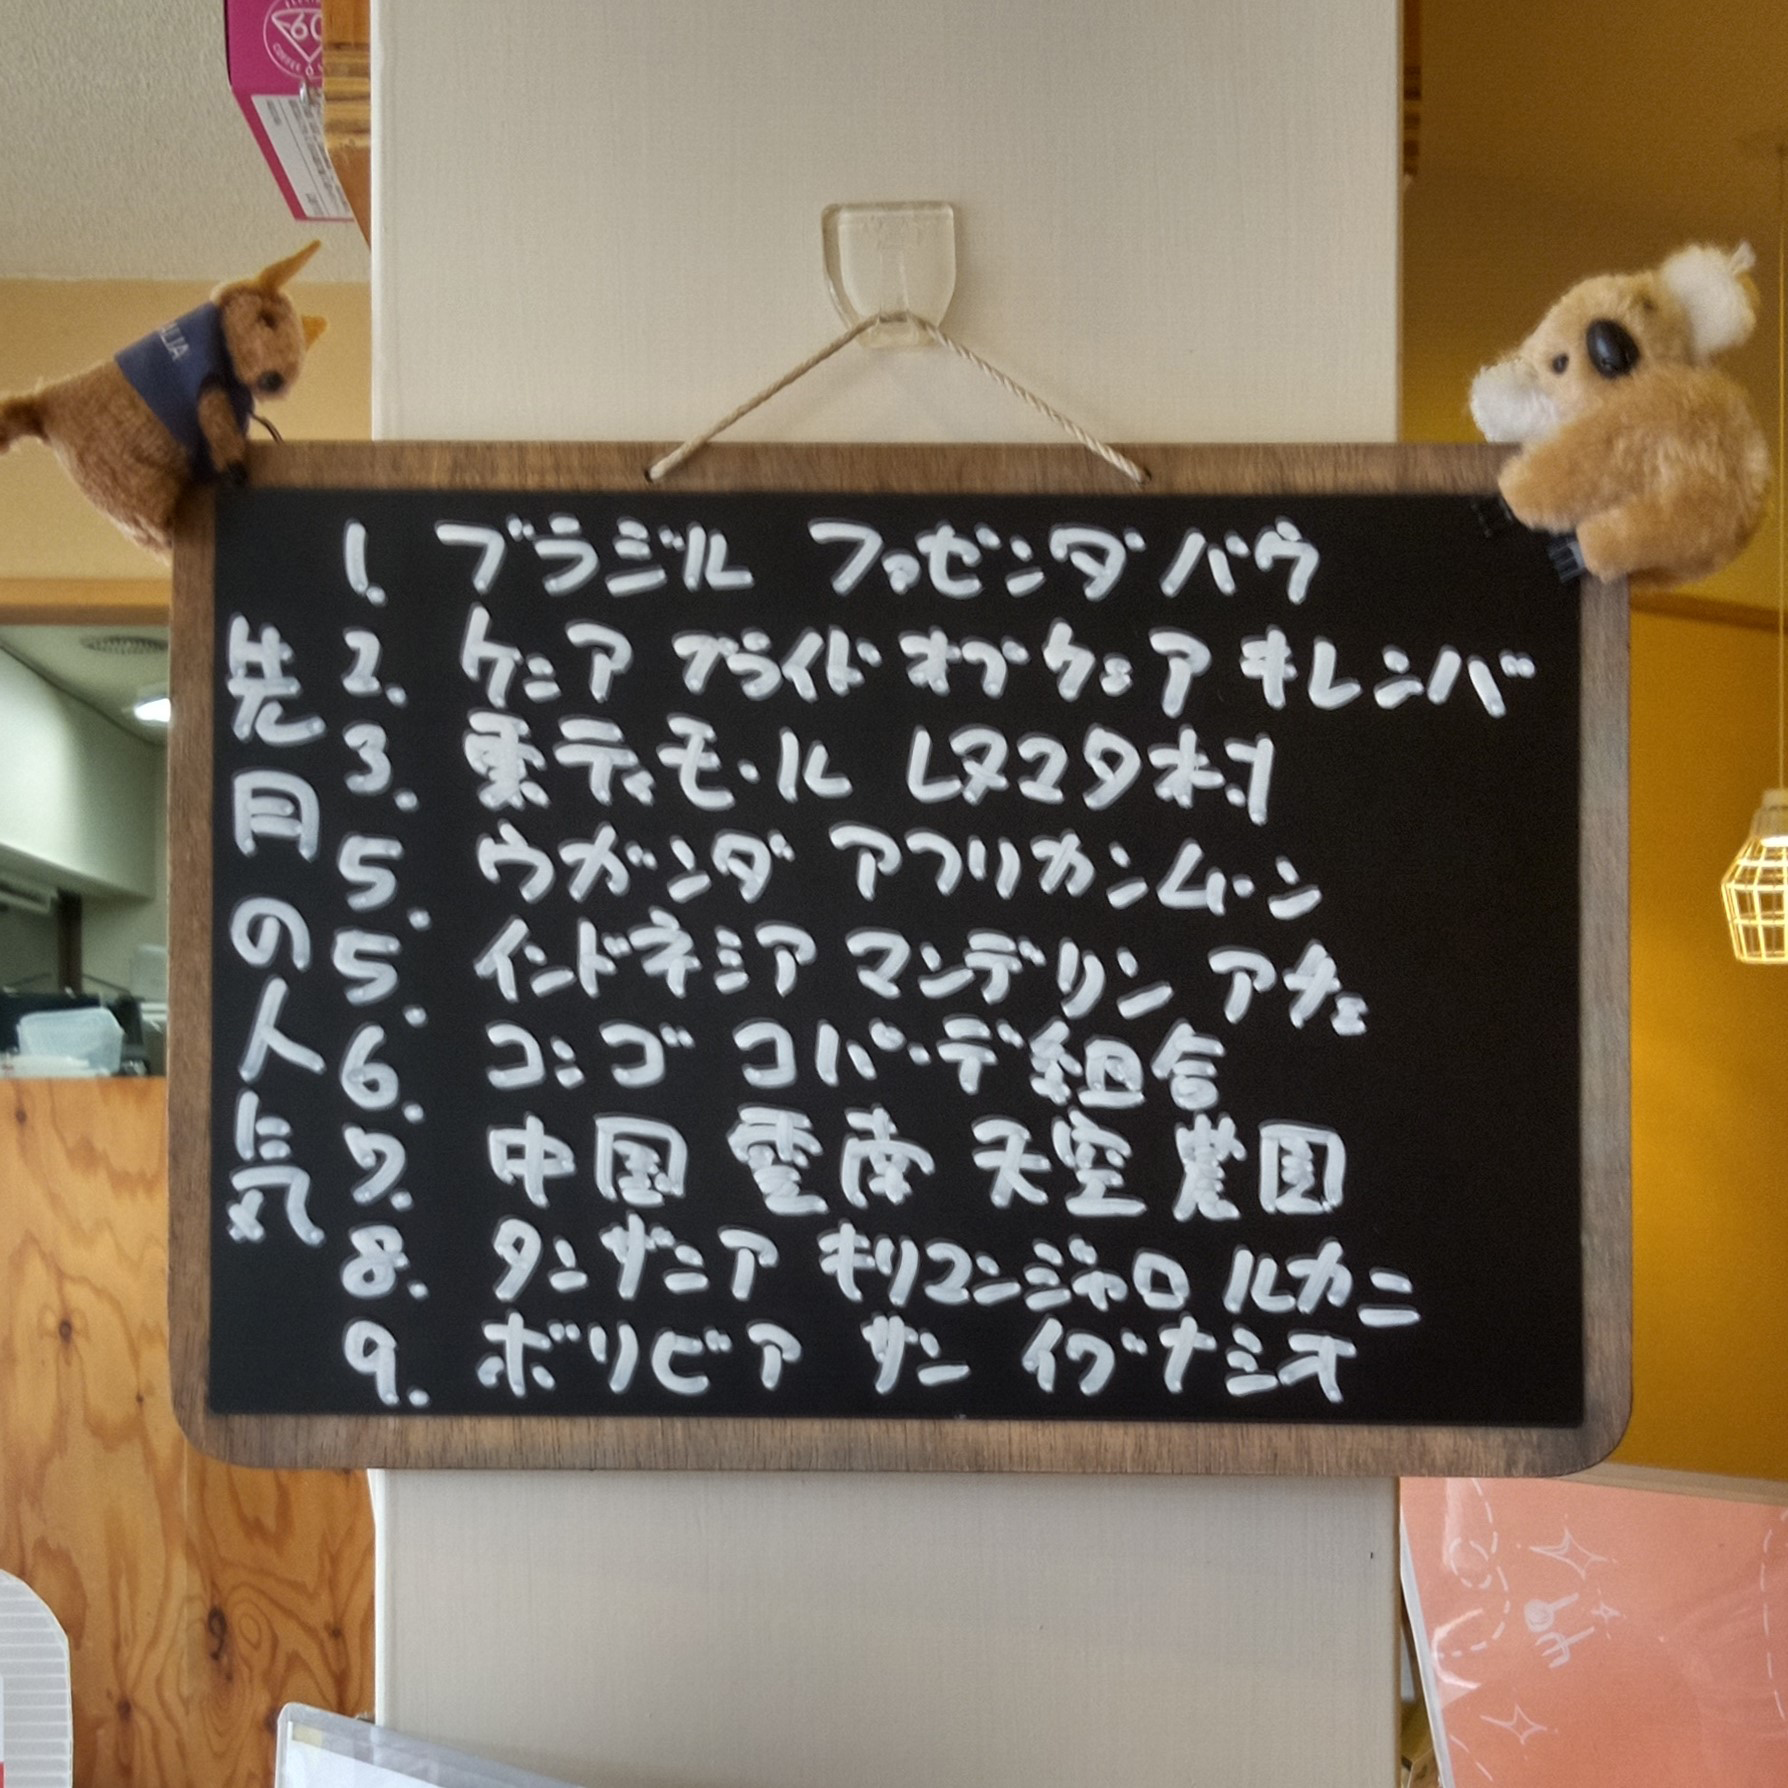 60
ALIA
先月の人気
1. ブラジル ファゼンダバウ
2. ケニア プライドオブケニア キレンバ
3. 東ティモール レヌマタ村
5. ウガンダ アフリカンムーン
5. インドネシア マンデリン アチェ
6. コンゴ コパーデ組合
7. 中国 雲南 天空農園
8. タンザニア キリマンジャロ ルカニ
9. ボリビア サン イグナシオ